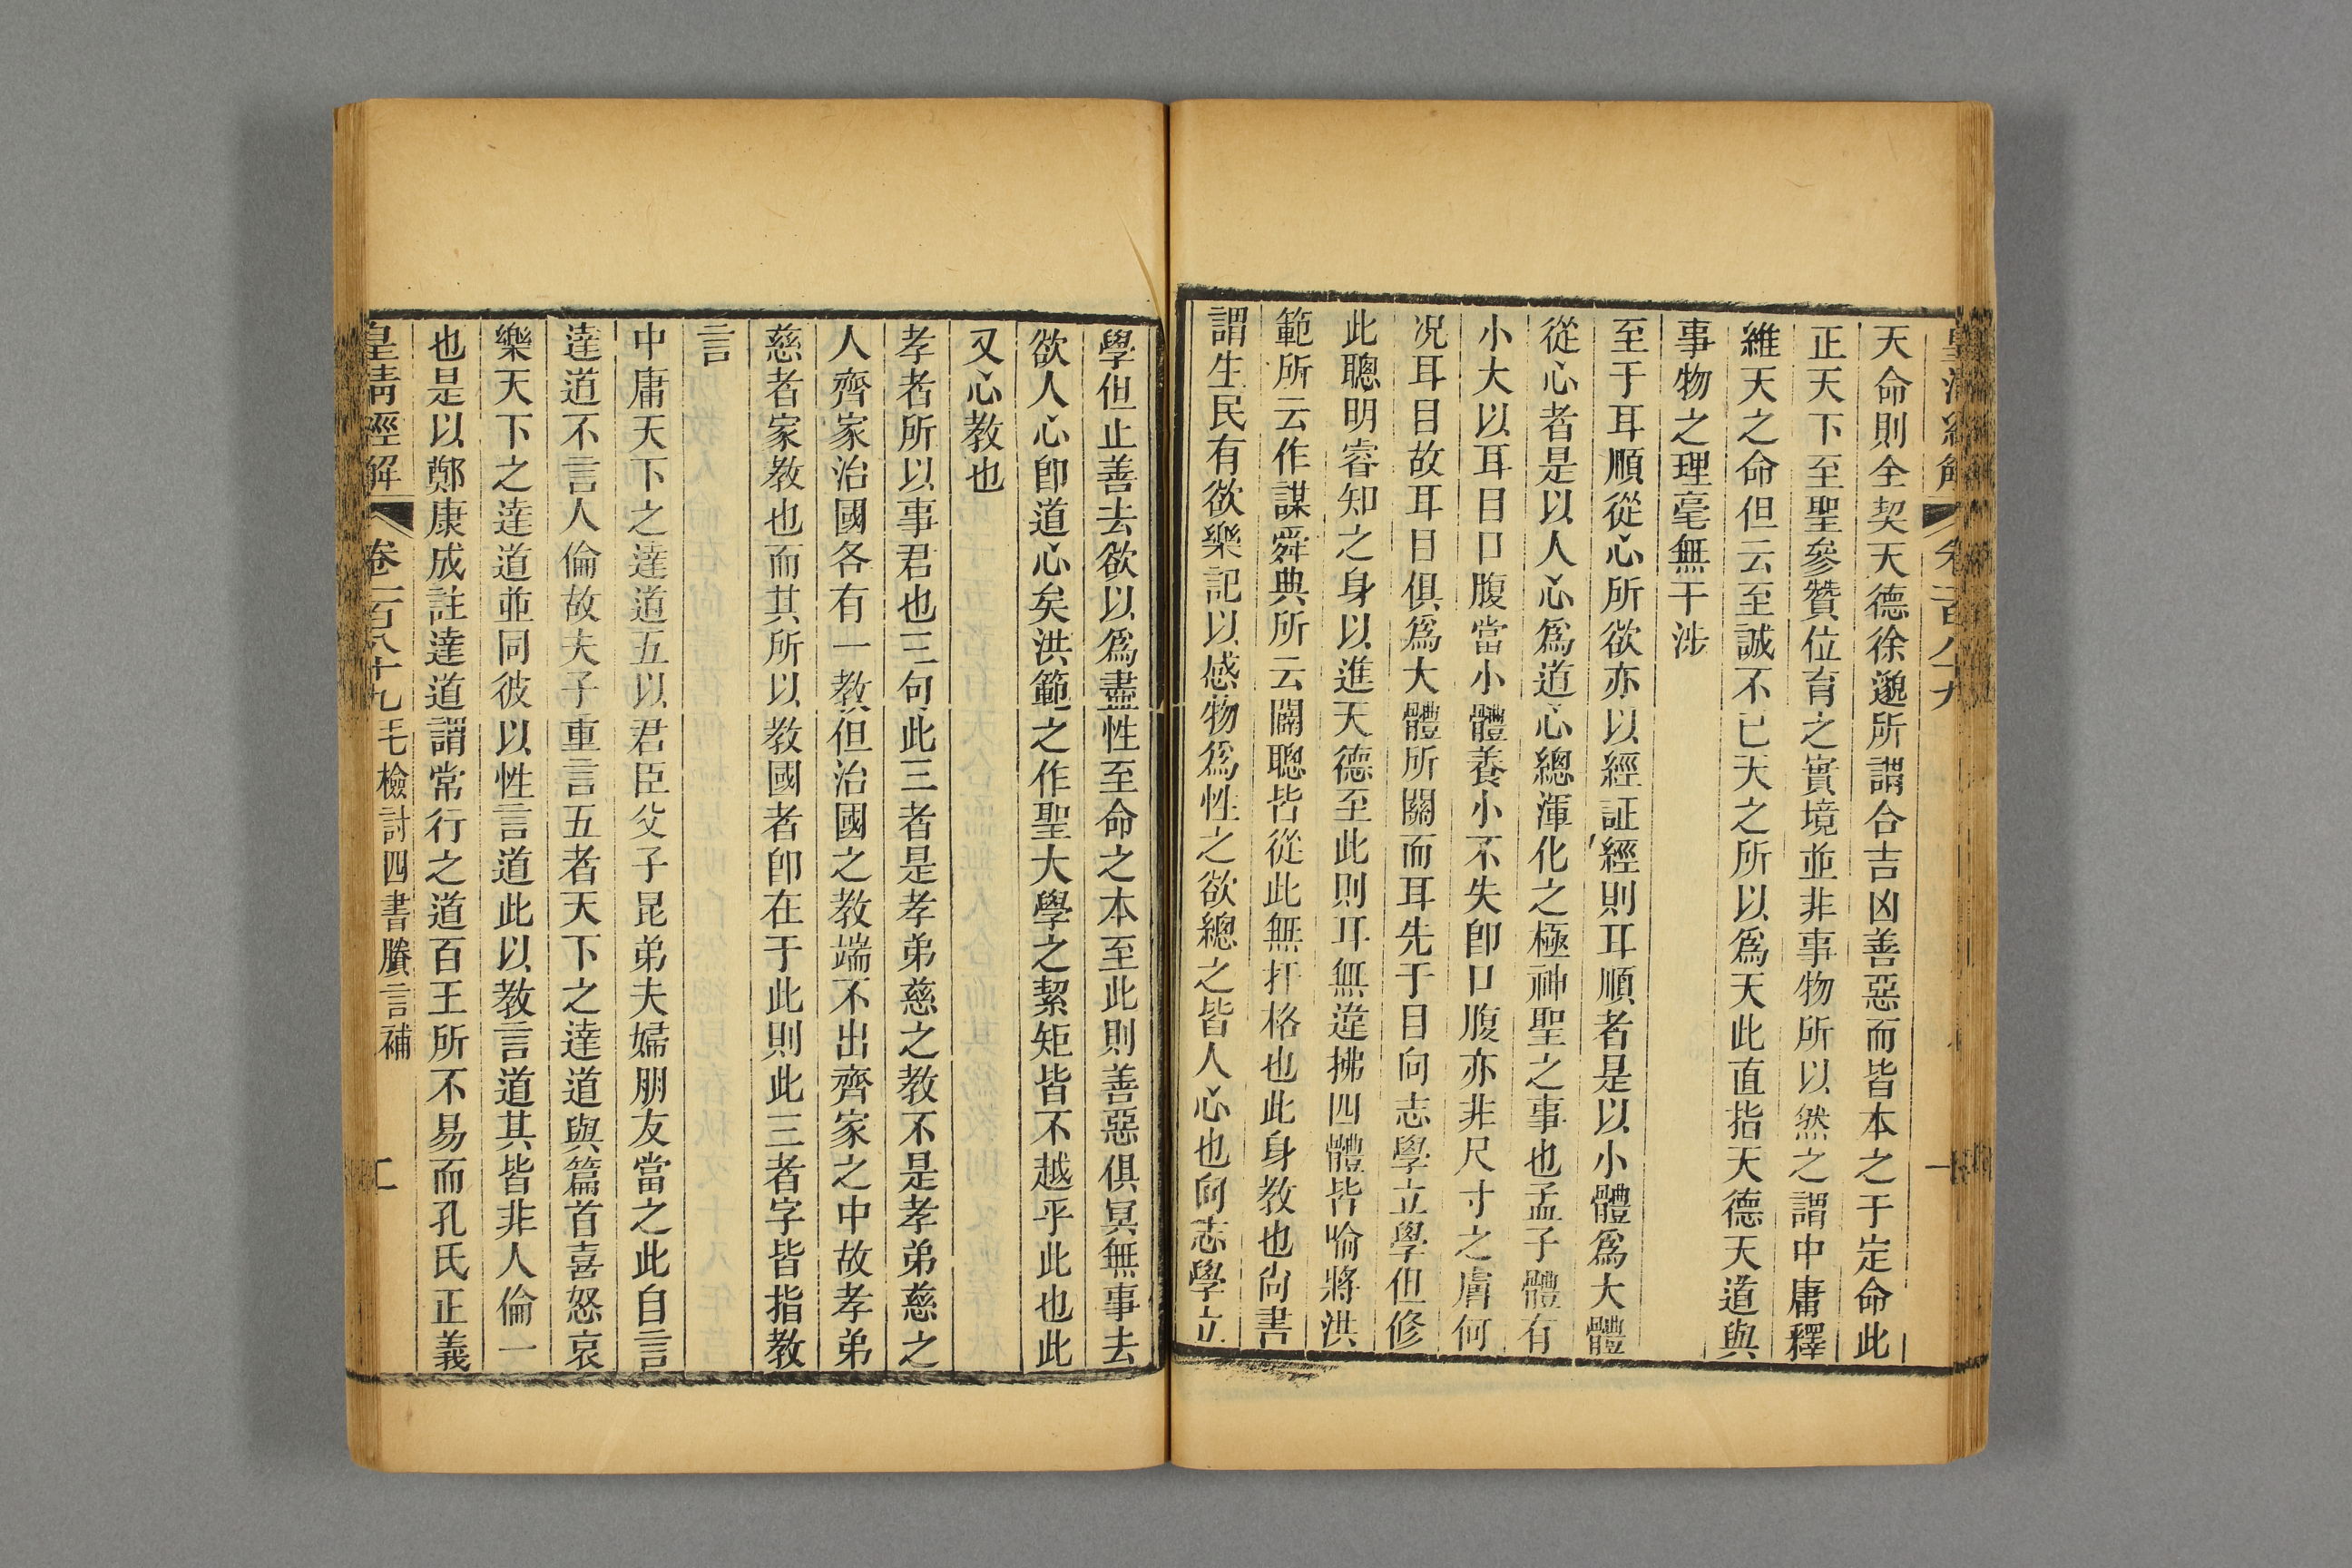 天命則全契天德徐邈所謂合吉凶善惡而皆本之于定命此
正天下至聖參贊位育之實境並非事物所以然之謂中庸釋
維天之命但云至誠不已天之所以爲天此直指天德天道與
事物之理毫無干涉
至于耳順從心所欲亦以經証經則耳順者是以小體爲大體
從心者是以人心爲道心總渾化之極神聖之事也孟子體有
小大以耳目口腹當小體養小不失卽口腹亦非尺寸之膚何
况耳目故耳目俱爲大體所關而耳先于目向志學立學但修
此聰明睿知之身以進天德至此則耳無違拂四體皆喻將洪
範所云作謀舜典所云闢聰皆從此無扞格也此身教也尙書
謂生民有欲樂記以感物爲性之欲總之皆人心也向志學立
學但止善去欲以爲盡性至命之本至此則善惡俱冥無事去
欲人心卽道心矣洪範之作聖大學之絜矩皆不越乎此也此
又心教也
孝者所以事君也三句此三者是孝弟慈之教不是孝弟慈之
人齊家治國各有一教但治國之教端不出齊家之中故孝弟
慈者家教也而其所以教國者卽在于此則此三者字皆指教
言
中庸天下之達道五以君臣父子昆弟夫婦朋友當之此自言
達道不言人倫故夫子重言五者天下之達道與篇首喜怒哀
樂天下之達道並同彼以性言道此以教言道其皆非人倫一
也是以鄭康成註達道謂常行之道百王所不易而孔氏正義
皇清經解 卷一百八十九 毛檢討四書賸言補